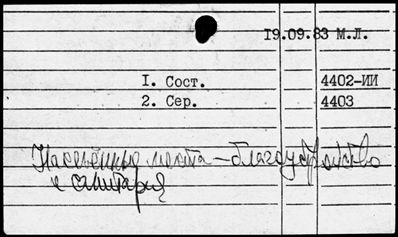 19.09.83 М.Л.
1. Сост. 4402-ИИ
2. Сер. 4403
Населённые места – благоустройство
и санитария